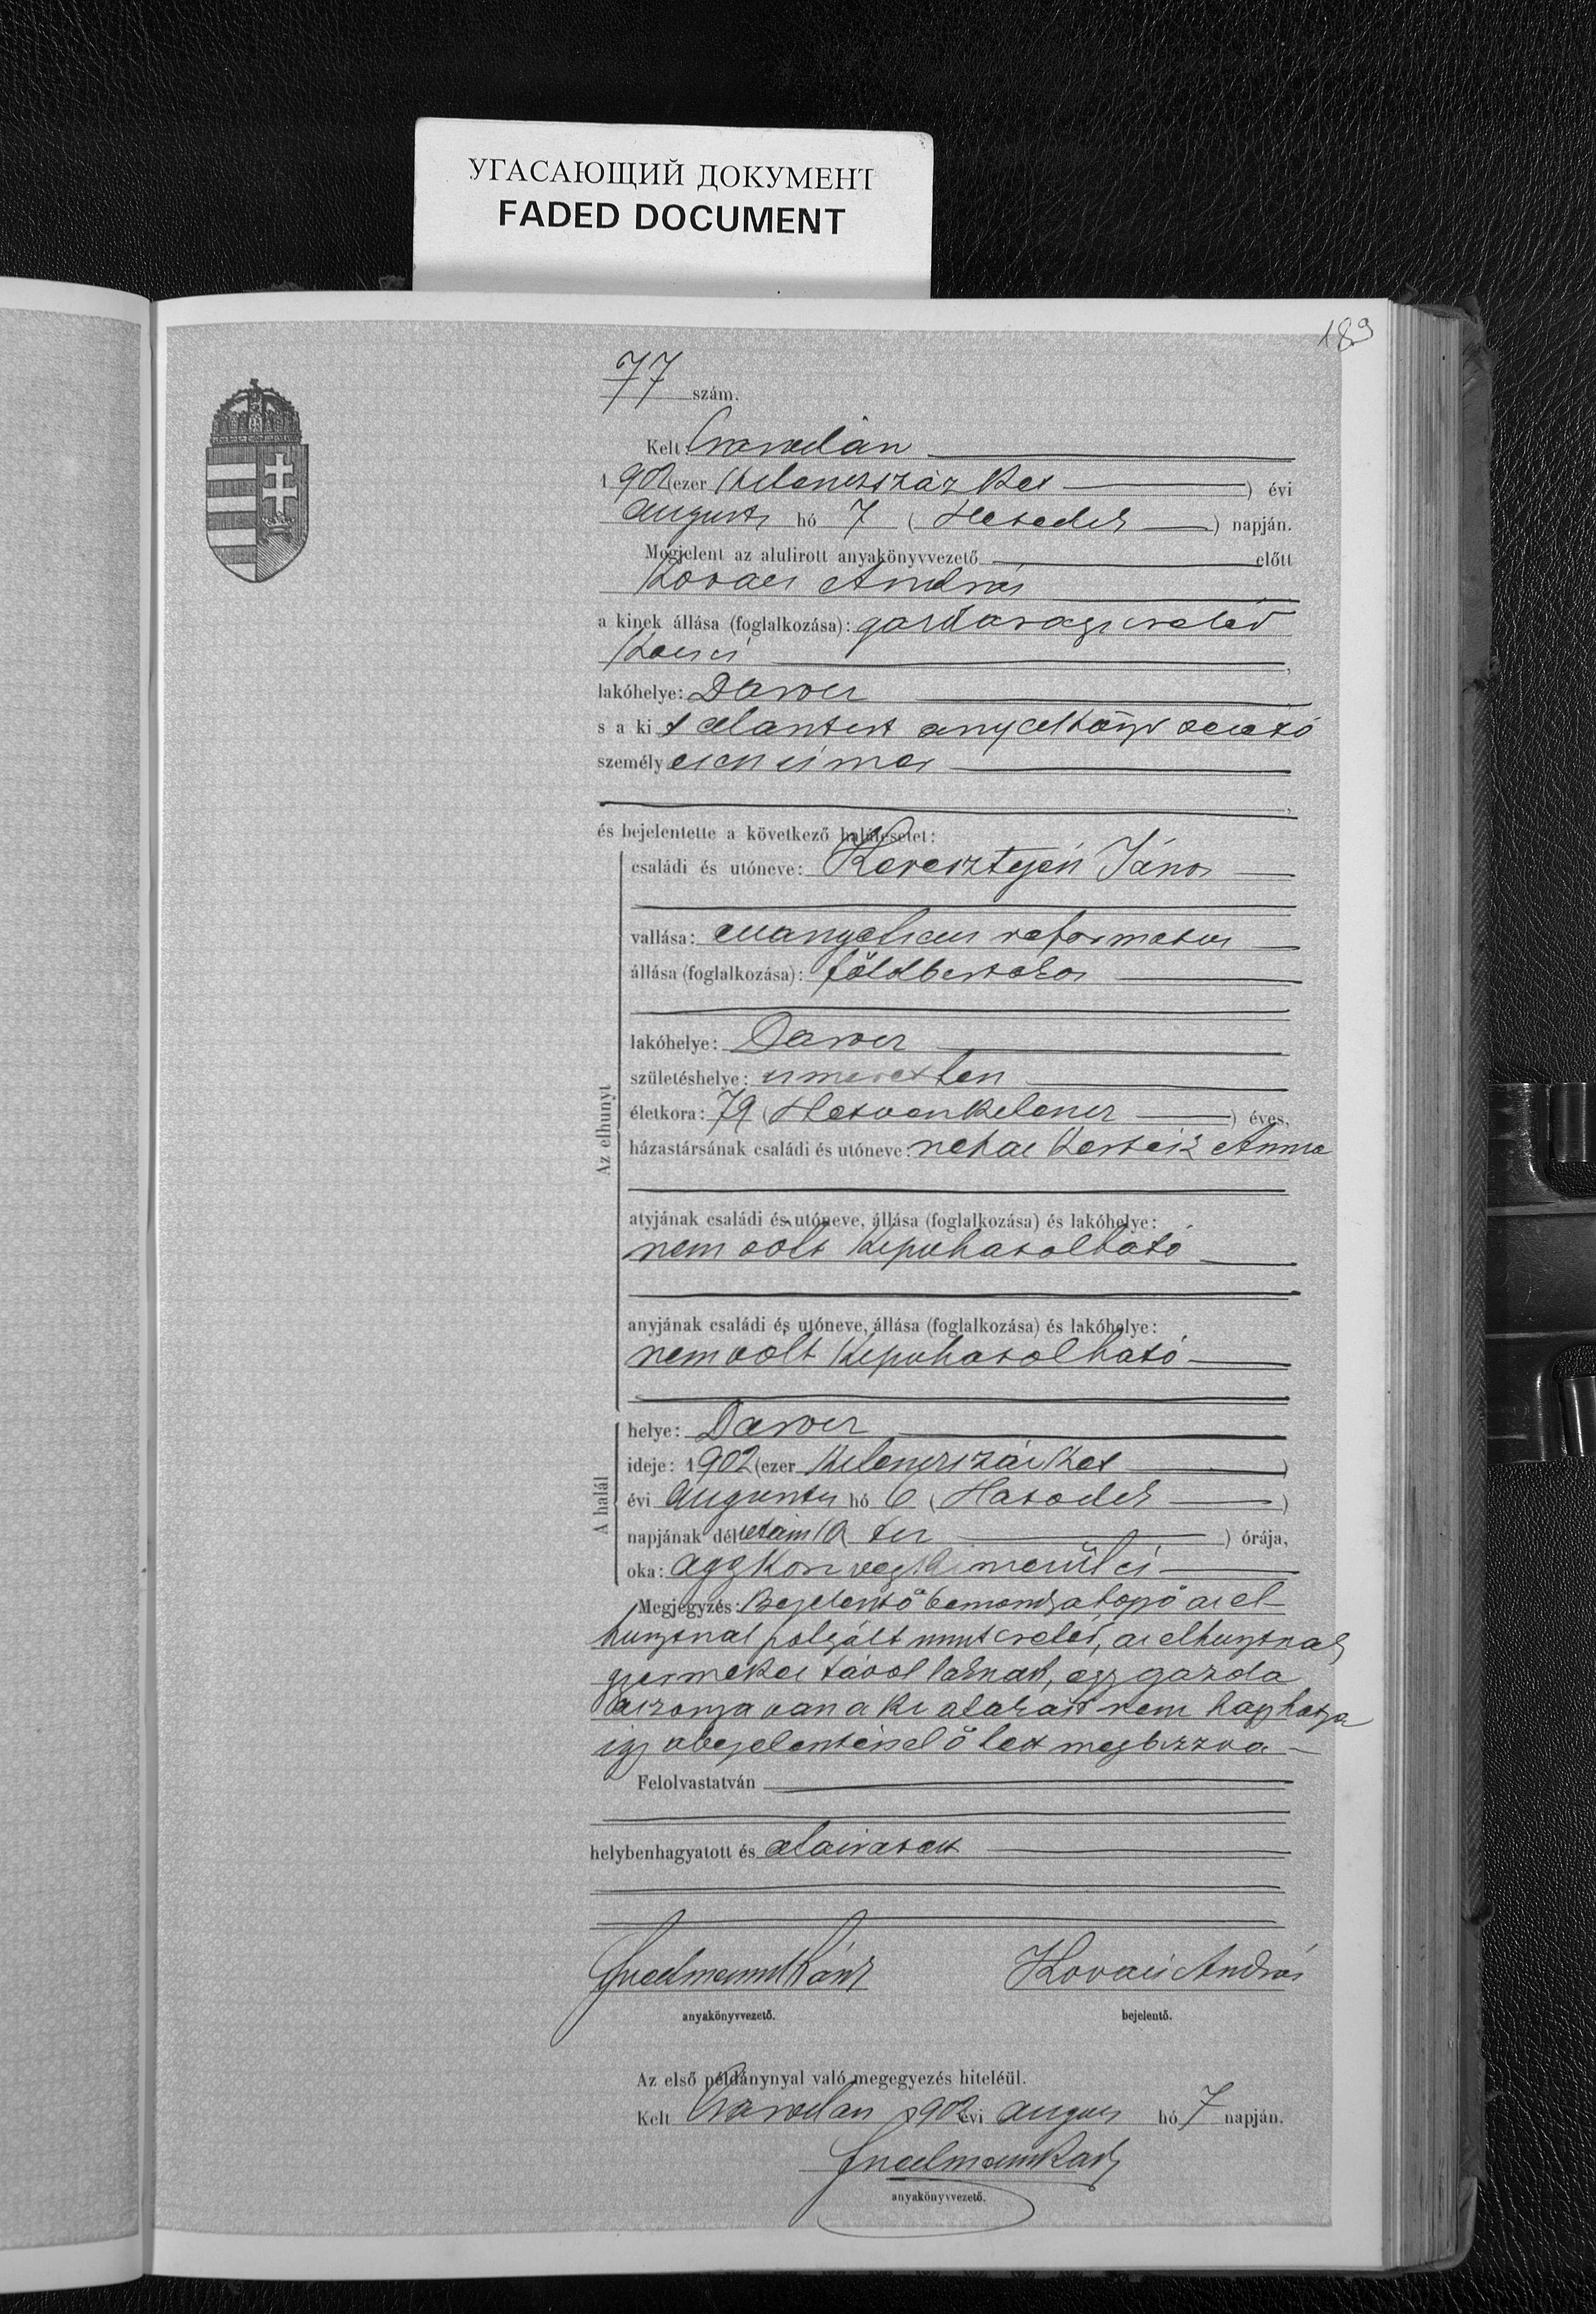 УГАСАЮЩИЙ ДОКУМЕНТ
FADED DOCUMENT
189
77 szám.
Kelt: Csarodán
1902 (ezer kilenczszáz két ) évi
augusts hó 7 ( Hetedik ) napján.
Megjelent az alulirott anyakönyvvezető előtt
Kovács András
a kinek állása (foglalkozása): gazdasági cseléd
Kocsis
lakóhelye: Darócz
s a kit alantirt anyakönyvvezető
személyesen ismer
és bejelentette a következő halálesetet:
Az elhunyt
családi és utóneve: Keresztyén János
vallása: evangelicus reformatus
állása (foglalkozása): földbirtokos
lakóhelye: Darócz
születéshelye: ismeretlen
életkora: 79 (Hetvenkilencz ) éves,
házastársának családi és utóneve: néhai Anna
atyjának családi és utóneve, állása (foglalkozása) és lakóhelye:
nem volt kipuhatolható
anyjának családi és utóneve, állása (foglalkozása) és lakóhelye:
nem volt kipuhatolható
A halál
helye: Darócz
ideje: 1902 (ezer kilenczszáz két )
évi augustus hó 6 ( Hatodik )
napjának délután ( ) órája,
oka: aggkori végkimerülés
Megjegyzés: Bejelentő bemondja hogy ő az el-
hunytnál szolgált mint cseléd, az elhunytnak
gyermekei távol laknak, egy gazda
asszonya van a ki a házat nem hagyhatja
így a bejelentéssel ő lett megbizva
Felolvastatván
helybenhagyatott és aláiratott
Kovács András
anyakönyvvezető. bejelentő.
Az első példánynyal való megegyezés hiteléül.
Kelt Csarodán 1902 évi augus hó 7 napján.
anyakönyvvezető.